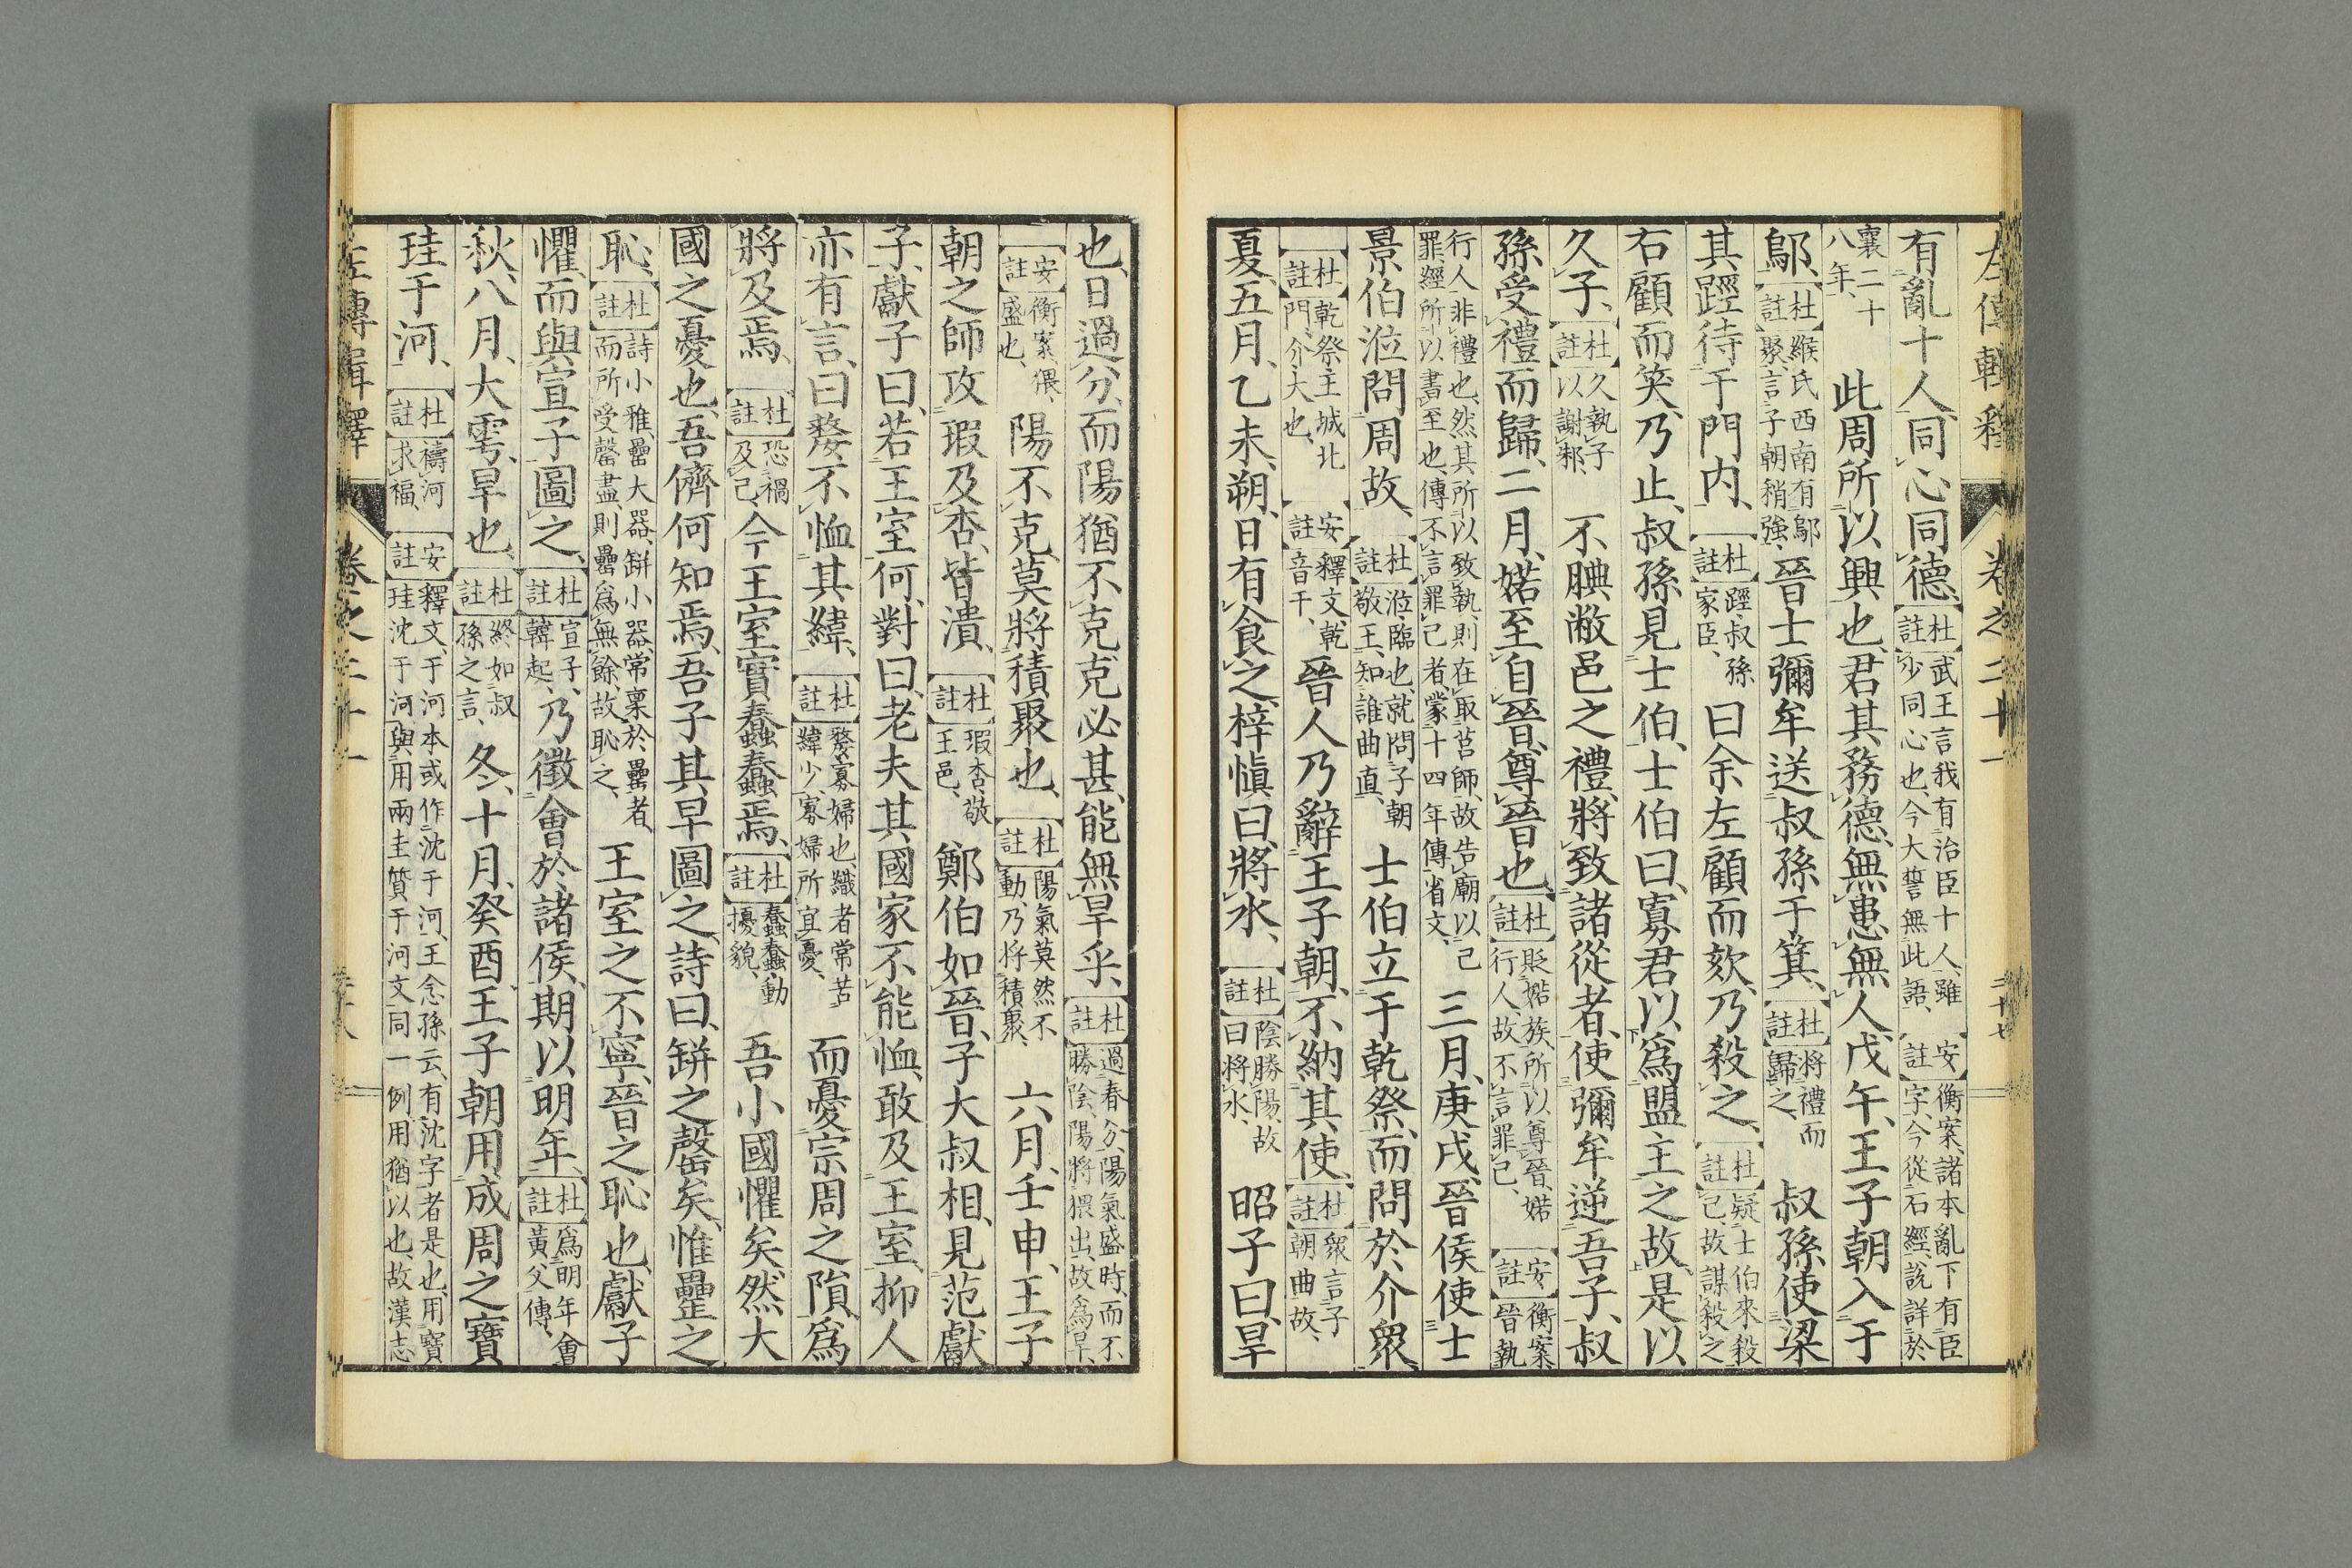 左傳輯釋 卷之二十一 三十七
有亂十人、同心同德、杜註武王言我有治臣十人、雖少同心也、今大誓無此語、安註衡案、諸本亂下有臣字、今從石經、說詳於
襄二十八年、此周所以興也、君其務德、無患無人、戊午、王子朝入于
鄔、杜註緱氏西南有鄔聚、言子朝稍強、晉士彌牟送叔孫于箕、杜註將禮而歸之、叔孫使梁
其踁待于門內、杜註踁、叔孫家臣、曰余左顧而欬、乃殺之、杜註疑士伯來殺己、故謀殺之
右顧而笑、乃止、叔孫見士伯、士伯曰、寡君以爲盟主之故、是以
久子、杜註久執子以謝邾、不腆敝邑之禮、將致諸從者、使彌牟逆吾子、叔
孫受禮而歸、二月、婼至自晉、尊晉也、杜註貶婼族、所以尊晉、婼行人、故不言罪己、安註衡案晉執
行人非禮也、然其所以致執、則在取莒師、故告廟以己罪、經所以書至也、傳不言罪己者、蒙十四年傳省文、三月、庚戌、晉侯使士
景伯涖問周故、杜註涖、臨也、就問子朝敬王、知誰曲直、士伯立于乾祭、而問於介衆、
杜註乾祭、王城北門、介大也、安註釋文、乾音干、晉人乃辭王子朝、不納其使、杜註衆言子朝曲故、
夏、五月、乙未、朔、日有食之、梓愼曰、將水、杜註陰勝陽、故曰將水、昭子曰、旱
也、日過分、而陽猶不克、克必甚、能無旱乎、杜註過春分、陽氣盛時、而不勝陰、陽將猥出、故爲旱、
安註衡案、猥、盛也、陽不克、莫將積聚也、杜註陽氣莫然不動、乃將積聚、六月、壬申、王子
朝之師攻瑕及杏、皆潰、杜註瑕杏、敬王邑、鄭伯如晉、子大叔相、見范獻
子、獻子曰、若王室何、對曰、老夫其國家不能恤、敢及王室、抑人
亦有言、曰嫠不恤其緯、杜註嫠、寡婦也、織者常苦緯少、寡婦所宜憂、而憂宗周之隕、爲
將及焉、杜註恐禍及己、今王室實蠢蠢焉、杜註蠢蠢、動擾貌、吾小國懼矣、然大
國之憂也、吾儕何知焉、吾子其早圖之、詩曰、缾之罄矣、惟罍之
恥、杜註詩小雅、罍大器、缾小器、常稟於罍者、而所受罄盡、則罍爲無餘、故恥之、王室之不寧、晉之恥也、獻子
懼、而與宣子圖之、杜註宣子、韓起、乃徵會於諸侯、期以明年、杜註爲明年會黃父傳、
秋、八月、大雩、旱也、杜註終如叔孫之言、冬、十月、癸酉、王子朝用成周之寶
珪于河、杜註禱河求福、安註釋文、于河本或作沈于河、王念孫云、有沈字者是也、用寶珪沈于河、與用兩圭質于河文同一例、用猶以也、故漢志
左傳輯釋 卷之二十一 三十八